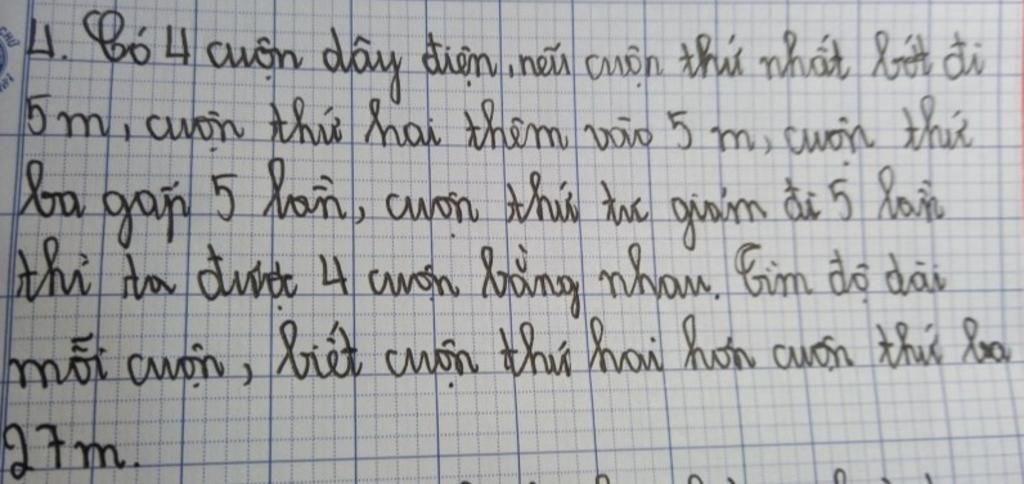 4. Có 4 cuộn dây điện, nếu cuộn thứ nhất bớt đi
5 m, cuộn thứ hai thêm vào 5 m, cuộn thứ
ba gấp 5 lần, cuộn thứ tư giảm đi 5 lần
thì ta được 4 cuộn bằng nhau. Tìm độ dài
mỗi cuộn, biết cuộn thứ hai hơn cuộn thứ ba
27 m.